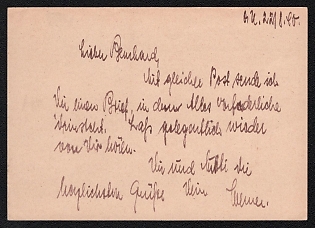 Lieber Bernhard,
Mit gleicher Post sende ich
Dir einen Brief, in dem Alles erforderliche
drinsteht. Lass gelegentlich wieder
von Dir hören.
Dir und Mutti die
herzlichsten Grüße Dein Werner.